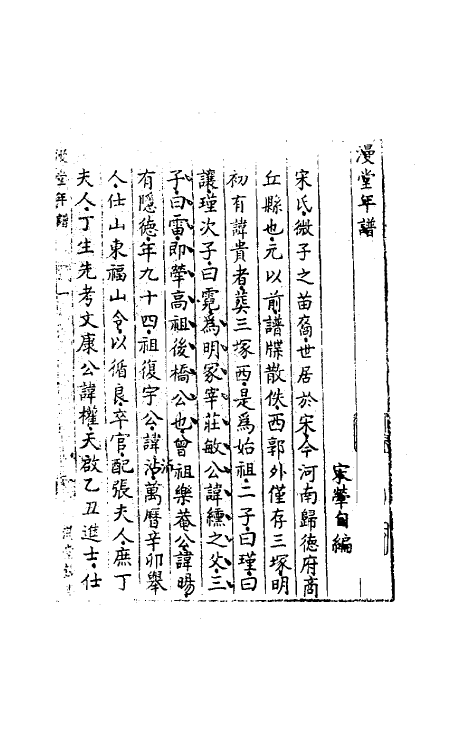 漫堂年譜
宋犖自編
宋氏微子之苗裔世居於宋今河南歸德府商
丘縣也元以前譜牒散佚西郭外僅存三塚明
初有諱貴者葬三塚西是爲始祖二子曰瑾曰
讓瑾次子曰霓爲明冢宰莊敏公諱纁之父三
子曰雷卽犖高祖後橋公也曾祖樂菴公諱暘
有隱德年九十四祖復宇公諱沾萬曆辛卯舉
人仕山東福山令以循良卒官配張夫人庶丁
夫人丁生先考文康公諱權天啟乙丑進士仕
漫堂年譜
一